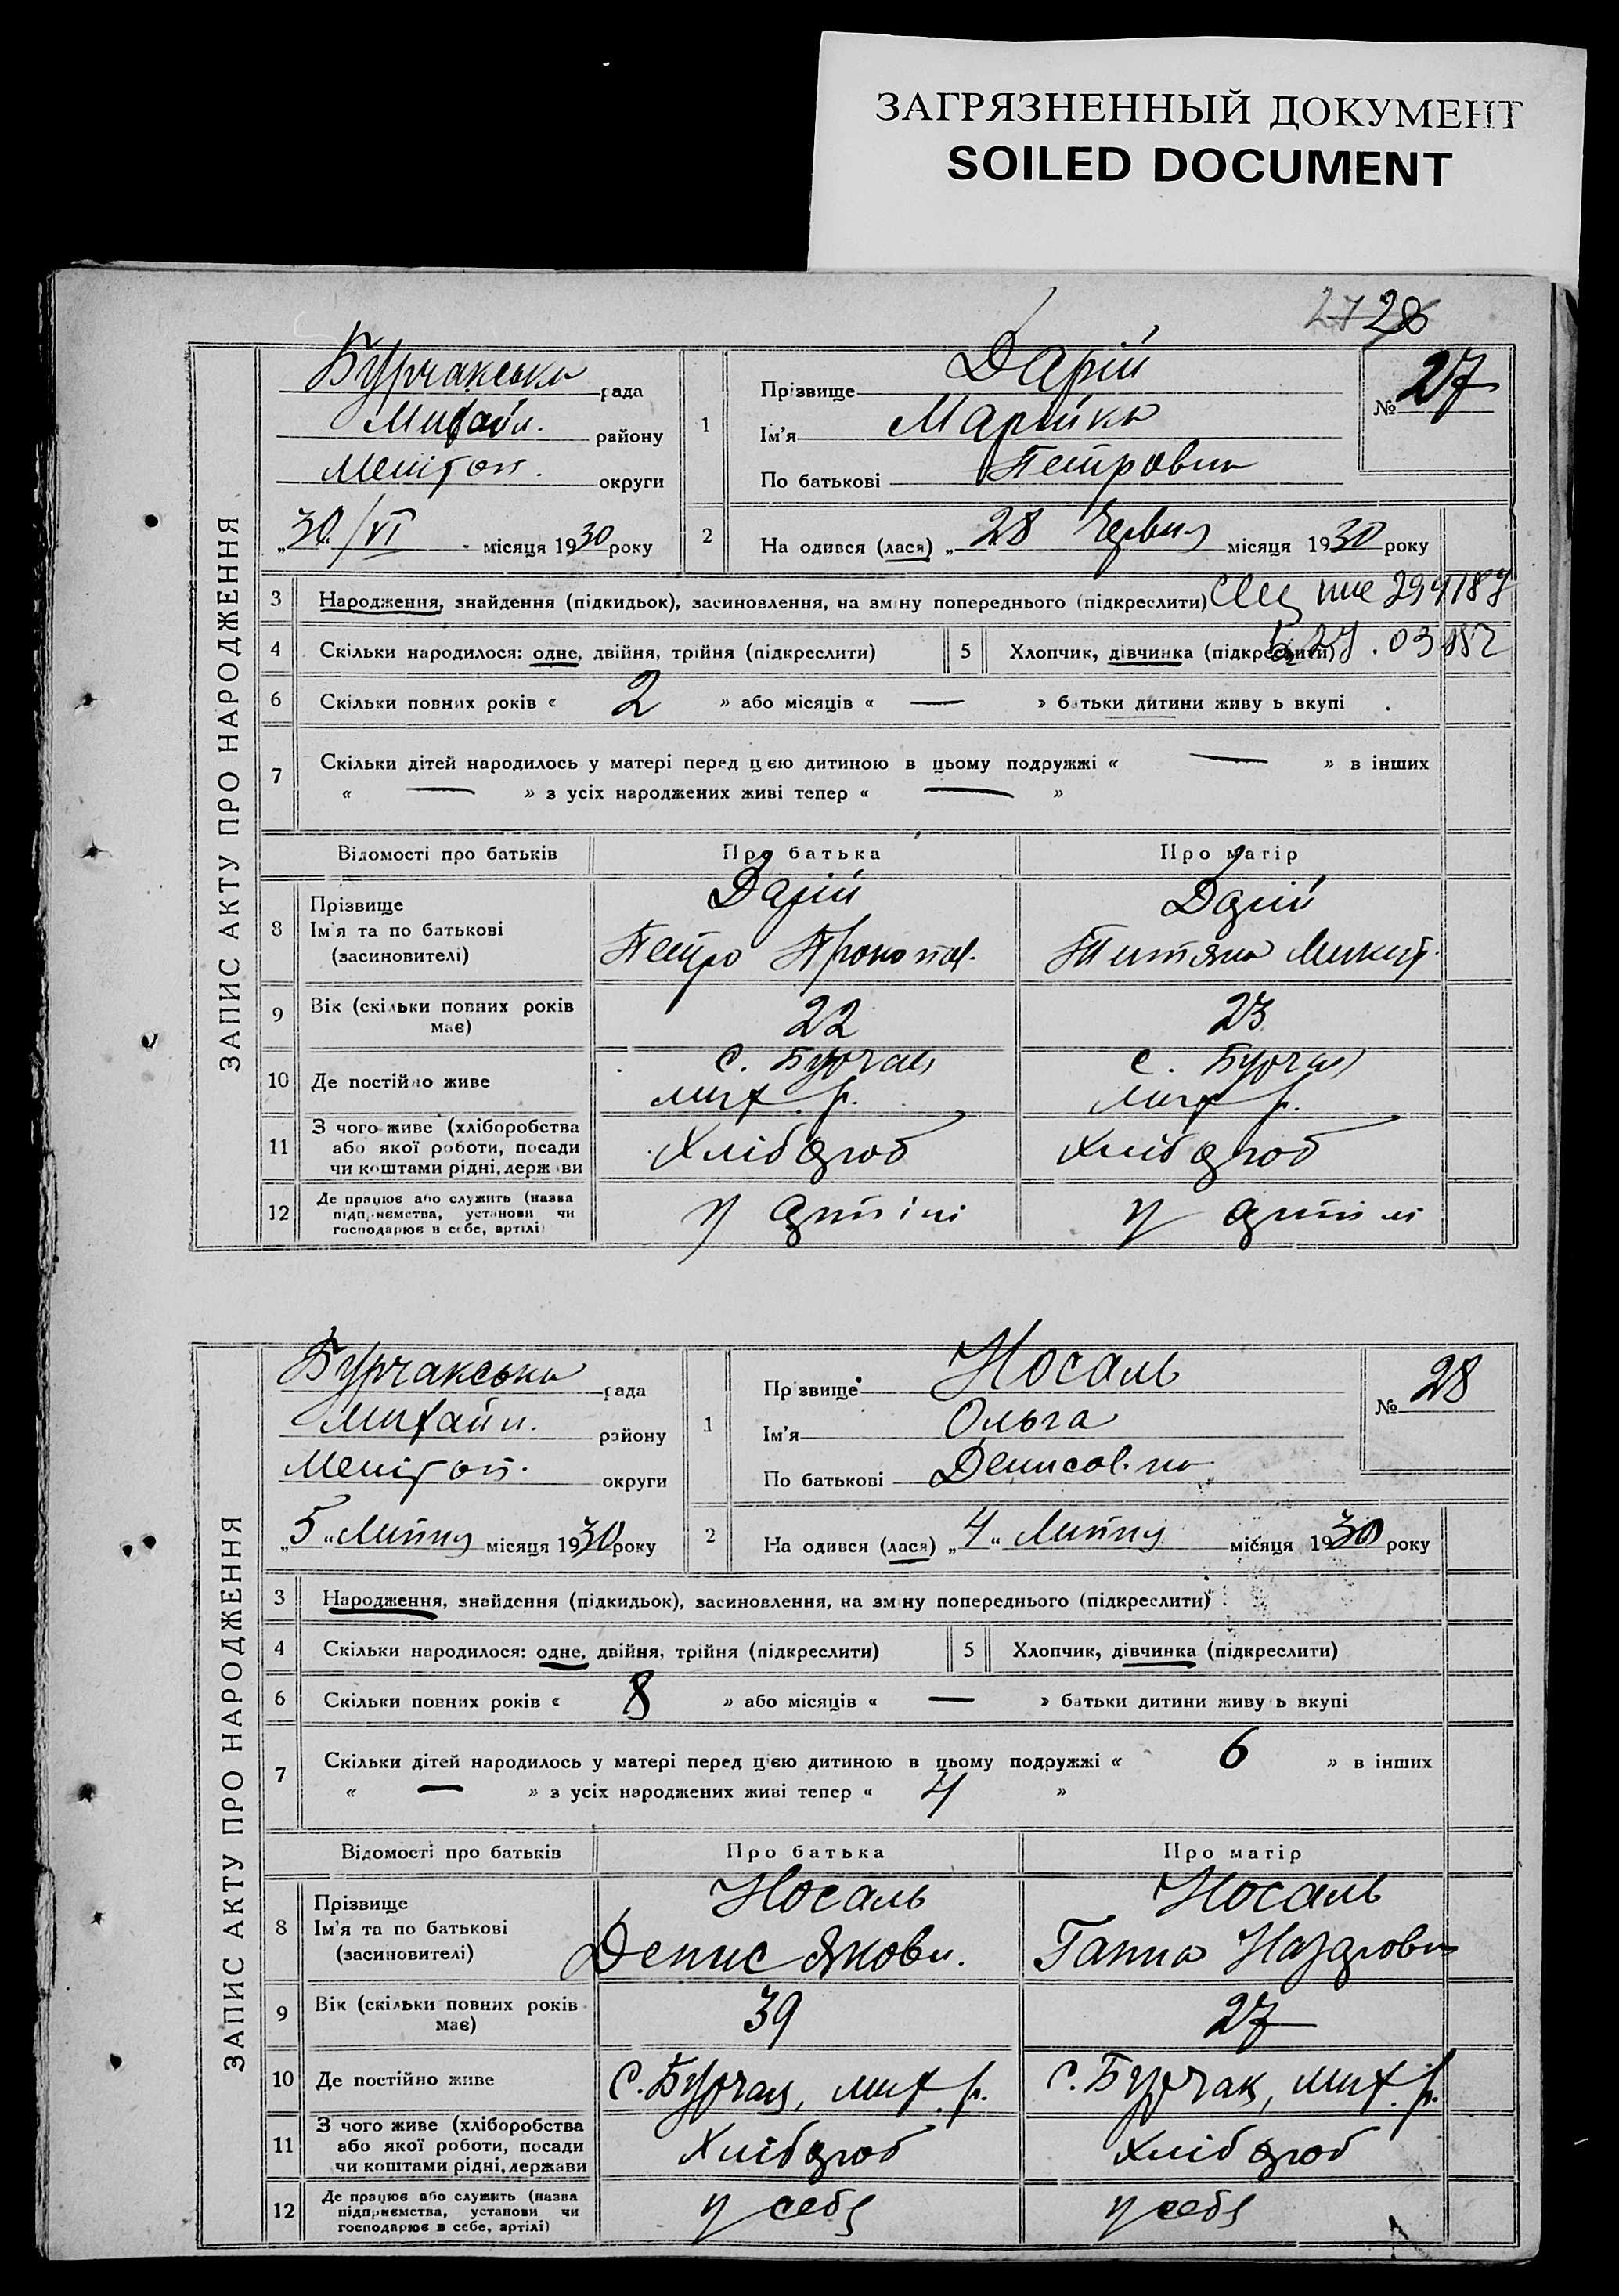 ЗАГРЯЗНЕННЫЙ ДОКУМЕНТ
SOILED DOCUMENT
27 28
ЗАПИС АКТУ ПРО НАРОДЖЕННЯ
Бурчакська рада
Михайл. району
Мелітоп. округи
„30/VI місяця 1930 року
1 Прізвище Дарій
Ім'я Марійка
По батькові Петровна
№ 27
2 На одився (лася) „28 Червня місяця 1930 року
3 Народження, знайдення (підкидьок), засиновлення, на зміну попереднього (підкреслити)
4 Скільки народилося: одне, двійня, трійня (підкреслити) 5 Хлопчик, дівчинка (підкреслити)
6 Скільки повних років « 2 » або місяців « — » батьки дитини живу ь вкупі
7 Скільки дітей народилось у матері перед цією дитиною в цьому подружжі « — » в інших
« — » з усіх народжених живі тепер « — »
Відомості про батьків Про батька Про матір
8 Прізвище Дарій Дарій
Ім'я та по батькові Петро Прокопов. Титяна Микит.
(засиновителі)
9 Вік (скільки повних років має) 22 23
10 Де постійно живе с. Бурчак с. Бурчак
мих. р. мих р.
11 З чого живе (хліборобства або якої роботи, посади чи коштами рідні, держави Хлібороб Хлібороб
12 Де працює або служить (назва підприємства, установи чи господарює в себе, артілі) у артілі у артілі
ЗАПИС АКТУ ПРО НАРОДЖЕННЯ
Бурчакська рада
Михайл. району
Мелітоп. округи
„5„ Липня місяця 1930 року
1 Прізвище Носаль
Ім'я Ольга
По батькові Денисов.на
№ 28
2 На одився (лася) „4„ Липня місяця 1930 року
3 Народження, знайдення (підкидьок), засиновлення, на зміну попереднього (підкреслити)
4 Скільки народилося: одне, двійня, трійня (підкреслити) 5 Хлопчик, дівчинка (підкреслити)
6 Скільки повних років « 8 » або місяців « — » батьки дитини живу ь вкупі
7 Скільки дітей народилось у матері перед цією дитиною в цьому подружжі « 6 » в інших
« — » з усіх народжених живі тепер « 4 »
Відомості про батьків Про батька Про матір
8 Прізвище Носаль Носаль
Ім'я та по батькові Денис Якови. Ганна Назаровн
(засиновителі)
9 Вік (скільки повних років має) 39 27
10 Де постійно живе С. Бурчак, мих. р. С. Бурчак, мих. р.
11 З чого живе (хліборобства або якої роботи, посади чи коштами рідні, держави Хлібороб Хлібороб
12 Де працює або служить (назва підприємства, установи чи господарює в себе, артілі) у себя у себя